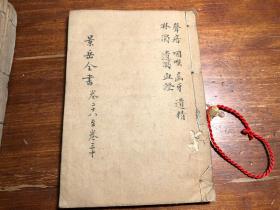 聲瘖 咽喉 齒牙 遺精
淋濁 遺溺 血證
景岳全書 卷二十八至卷三十